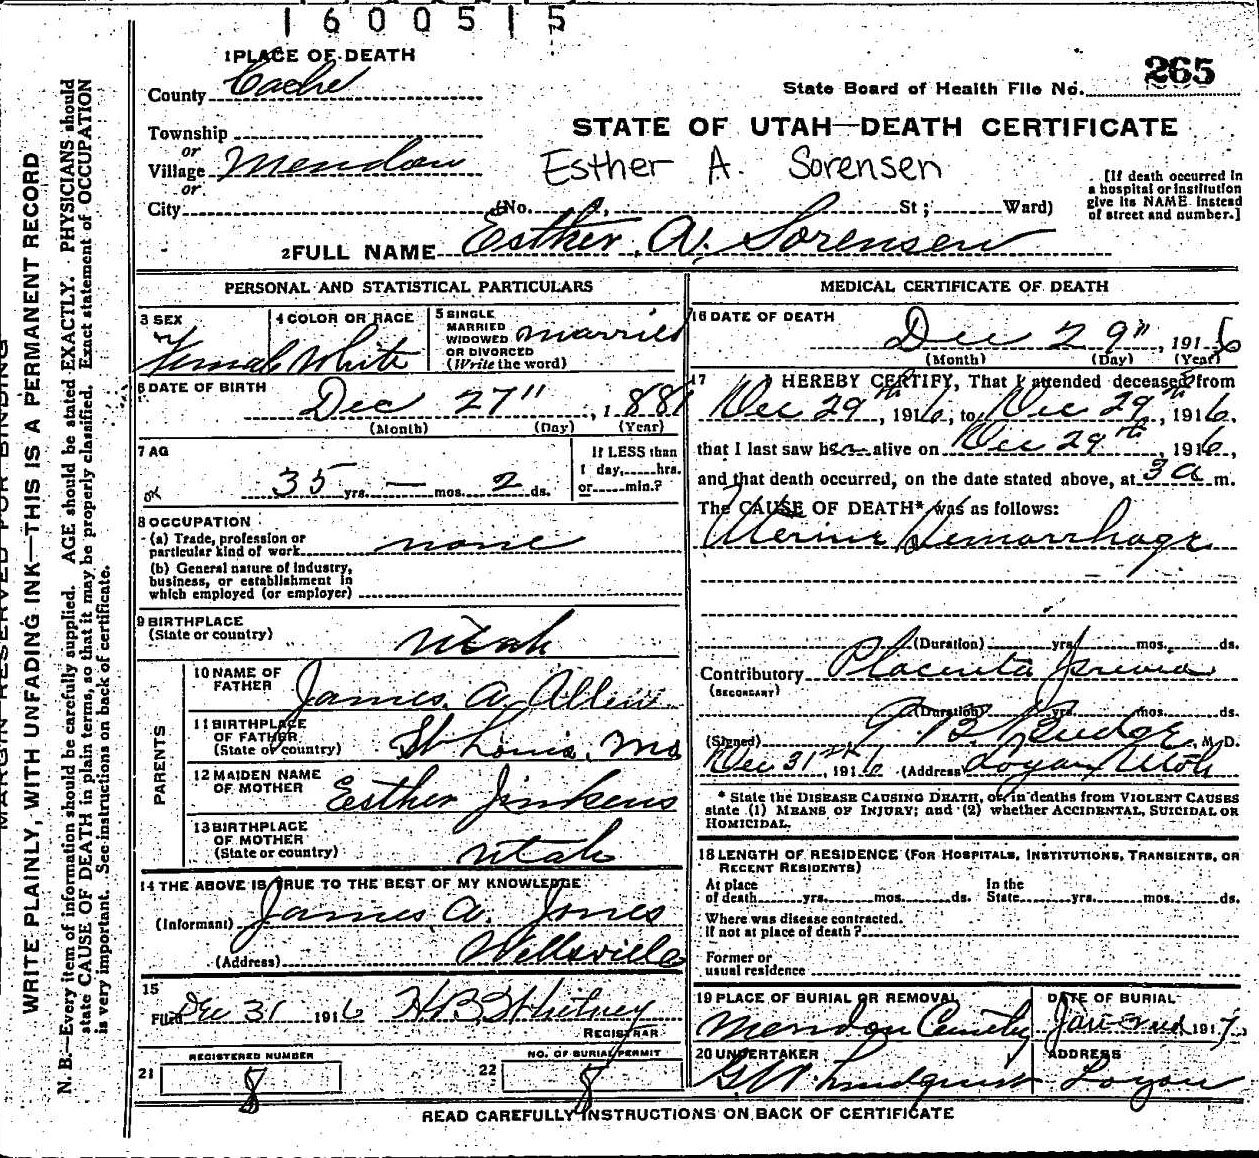 1600515
1 PLACE OF DEATH
County Cache
265
State Board of Health File No.
Township
or
Village Mendon
or
City (No. St; Ward)
STATE OF UTAH—DEATH CERTIFICATE
Esther A. Sorensen
[If death occurred in
a hospital or institution
give its NAME instead
of street and number.]
2 FULL NAME Esther A. Sorensen
PERSONAL AND STATISTICAL PARTICULARS
3 SEX
Female
4 COLOR OR RACE
White
5 SINGLE
MARRIED
WIDOWED
OR DIVORCED
(Write the word)
married
6 DATE OF BIRTH
Dec 27"
(Month) (Day) (Year)
7 AG
35 yrs. — mos. 2 ds.
If LESS than
1 day, hrs.
or min.?
8 OCCUPATION
(a) Trade, profession or
particular kind of work none
(b) General nature of industry,
business, or establishment in
which employed (or employer)
9 BIRTHPLACE
(State or country) Utah
PARENTS
10 NAME OF
FATHER James A. Allen
11 BIRTHPLACE
OF FATHER
(State or country) St Louis, Mo
12 MAIDEN NAME
OF MOTHER Esther Jinkens
13 BIRTHPLACE
OF MOTHER
(State or country) Utah
14 THE ABOVE IS TRUE TO THE BEST OF MY KNOWLEDGE
(Informant) James A. Jones
(Address) Wellsville
15
Filed Dec 31 1916 H.B. Whitney
REGISTRAR
REGISTERED NUMBER
21 8
NO. OF BURIAL PERMIT
22 8
MEDICAL CERTIFICATE OF DEATH
16 DATE OF DEATH
Dec 29", 1916
(Month) (Day) (Year)
17 I HEREBY CERTIFY, That I attended deceased from
Dec 29th, 1916, to Dec 29th, 1916,
that I last saw her alive on Dec 29th, 1916,
and that death occurred, on the date stated above, at 3 a m.
The CAUSE OF DEATH* was as follows:
Uterine Hemorrhage
(Duration) yrs. mos. ds.
Contributory Placenta Previa
(SECONDARY)
(Duration) yrs. mos. ds.
(Signed) B. Budge, M.D.
Dec 31st, 1916 (Address) Logan Utah
* State the DISEASE CAUSING DEATH, or, in deaths from VIOLENT CAUSES
state (1) MEANS OF INJURY; and (2) whether ACCIDENTAL, SUICIDAL OR
HOMICIDAL.
18 LENGTH OF RESIDENCE (FOR HOSPITALS, INSTITUTIONS, TRANSIENTS, OR
RECENT RESIDENTS)
At place
of death yrs. mos. ds.
In the
State yrs. mos. ds.
Where was disease contracted.
if not at place of death?
Former or
usual residence
19 PLACE OF BURIAL OR REMOVAL
Mendon
DATE OF BURIAL
Jan 2nd 1917
20 UNDERTAKER
G.W. Lindquist
ADDRESS
Logan
READ CAREFULLY INSTRUCTIONS ON BACK OF CERTIFICATE
MARGIN RESERVED FOR BINDING
WRITE PLAINLY, WITH UNFADING INK—THIS IS A PERMANENT RECORD
N. B.—Every item of information should be carefully supplied. AGE should be stated EXACTLY. PHYSICIANS should
state CAUSE OF DEATH in plain terms, so that it may be properly classified. Exact statement of OCCUPATION
is very important. See instructions on back of certificate.